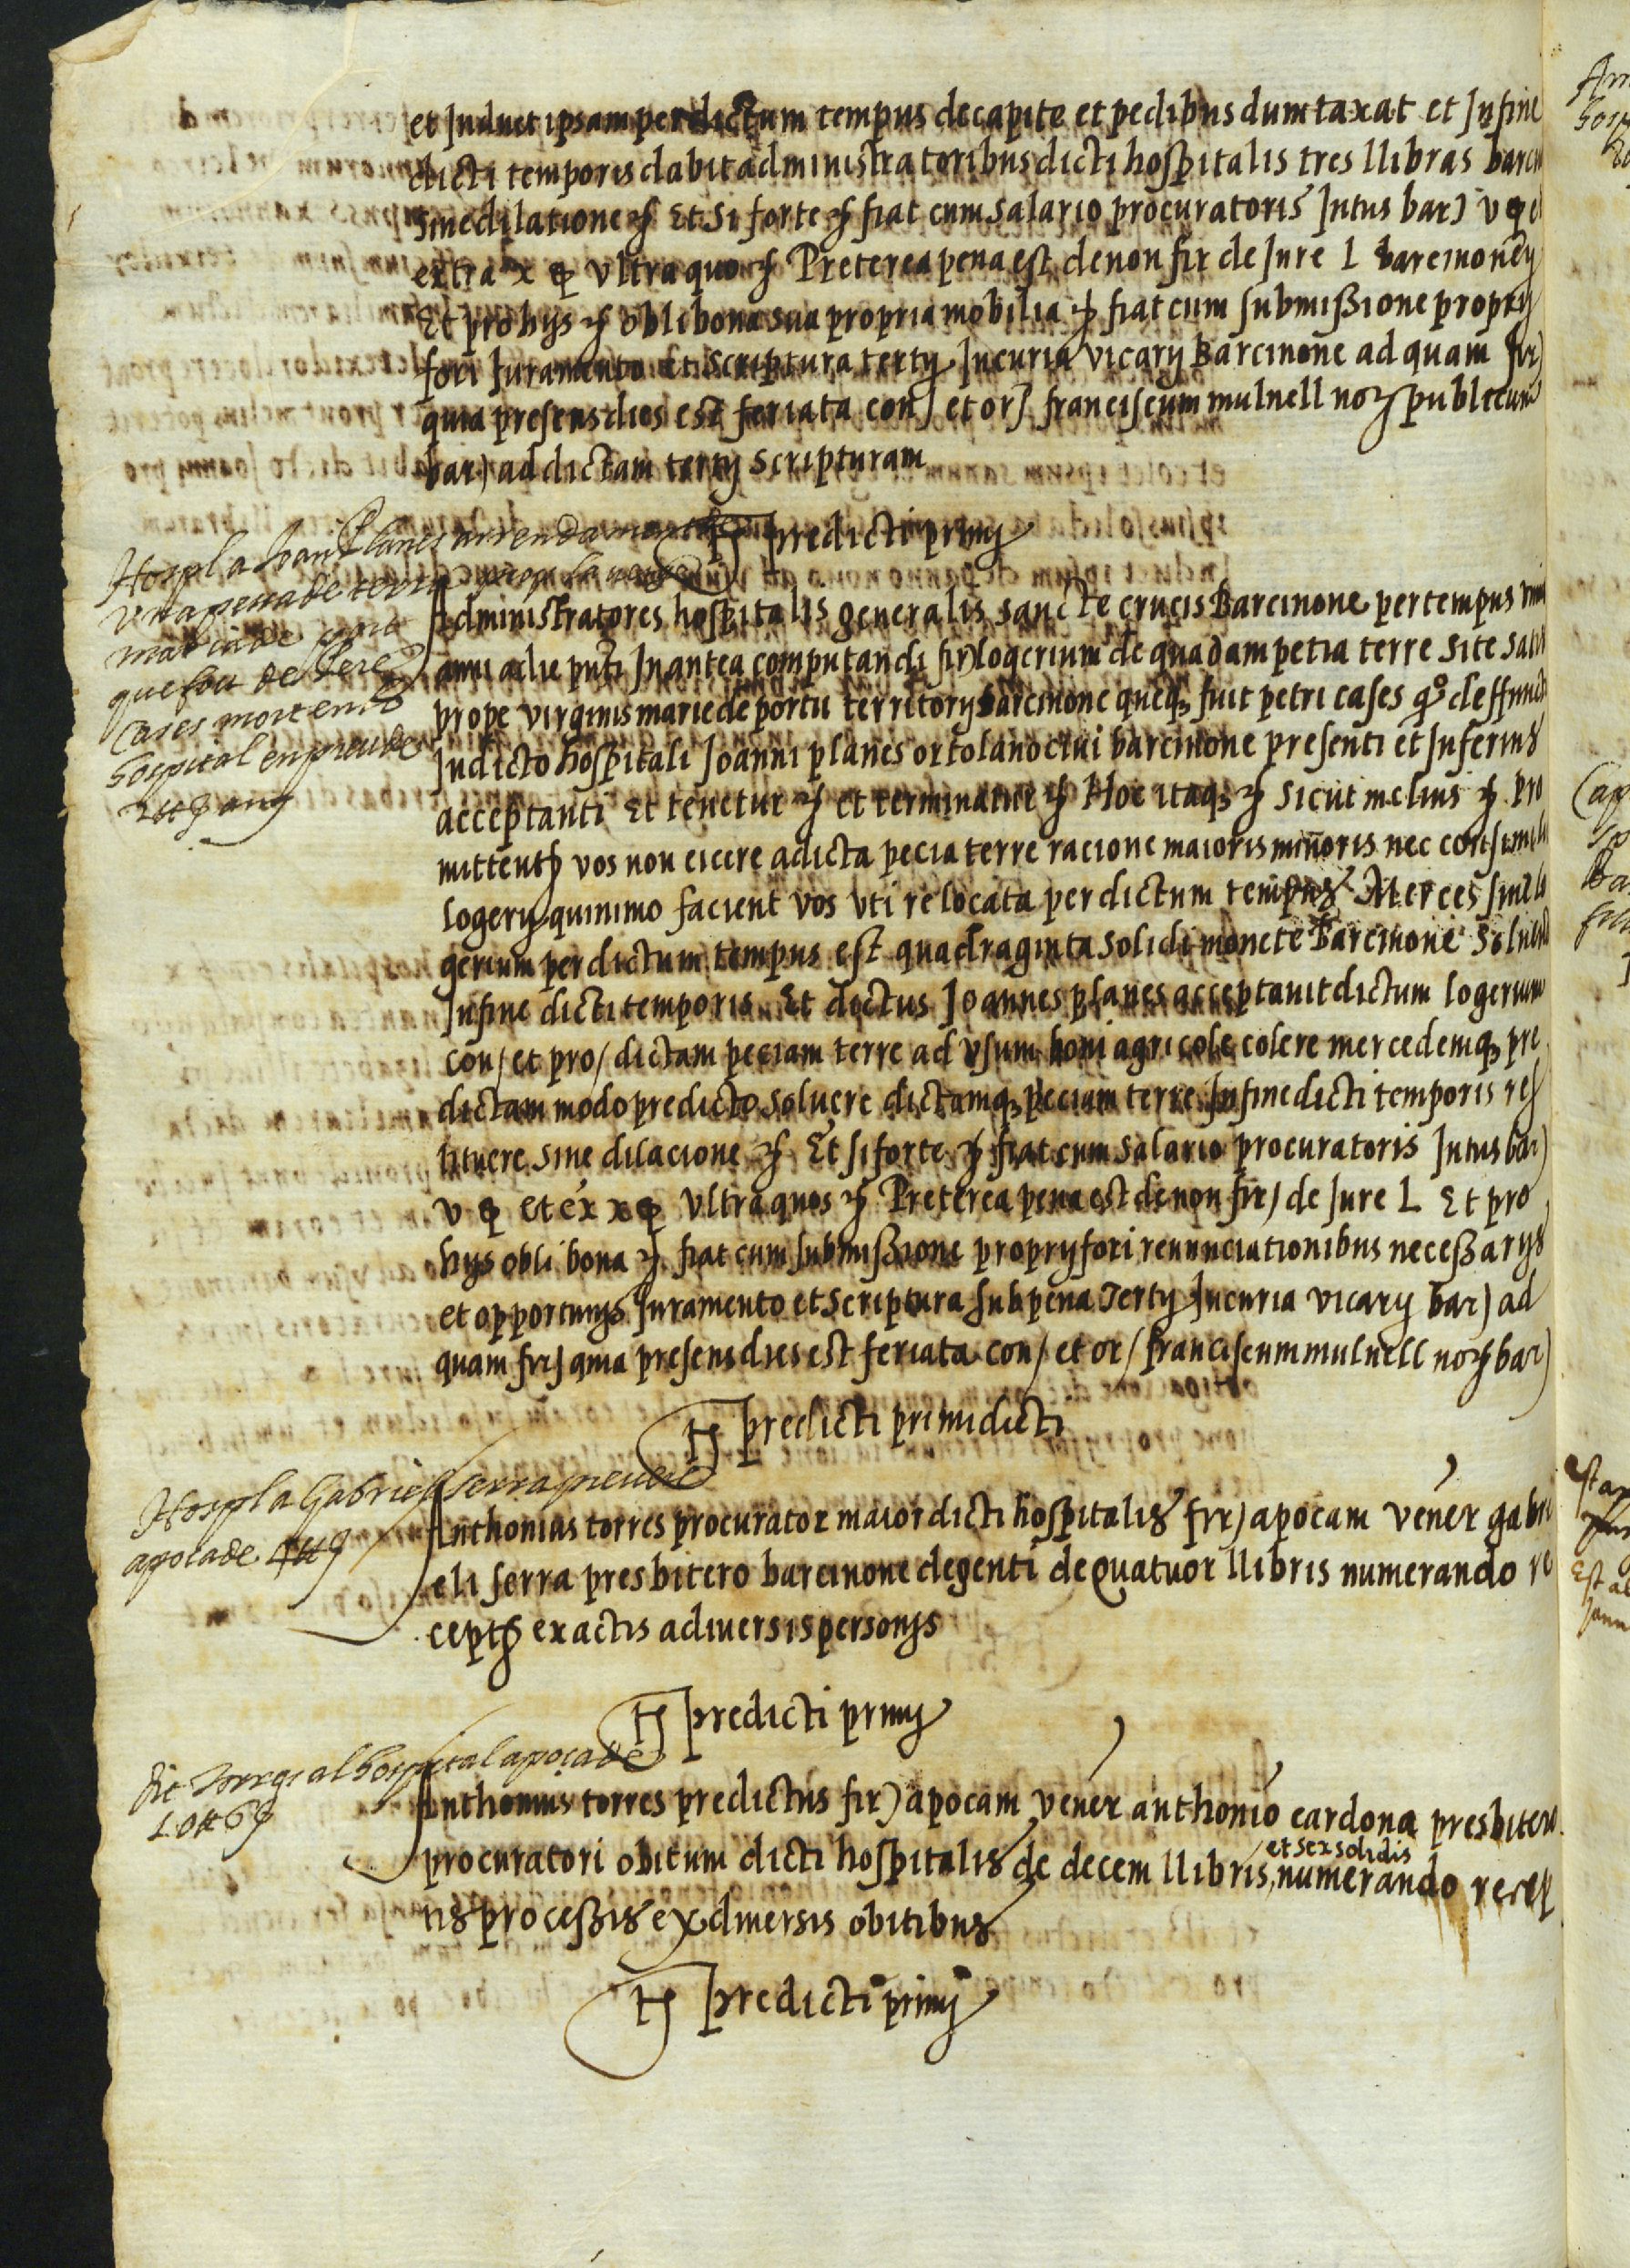 et Induet ipsam per dictum tempus de capite et pedibus dumtaxat et In fine
dicti temporis dabit administratoribus dicti hospitalis tres llibras barcn
sine dilatione etc Et si forte etc fiat cum salario procuratoris Intus bar) v
extra x Vltra quo etc Preterea pena est de non fir de Jure L barcinoney
Et pro hijs etc obli bona sua propria mobilia etc fiat cum submißione proprij
fori Juramento et scriptura tertij In curia vicarij Barcinone ad quam fir)
quia presens dies est feriata con) et or) franciscum mulnell not publicum
bar) ad dictam tertij scripturam
Ts predicti primj
Hospl a Joan Planes arrenda
vna pessa de terra prop la verge
maria de port
que fou de Pere
Cases mort en lo
hospital en preu de
2 ll s any
Administratores hospitalis generalis sancte crucis Barcinone per tempus vnius
anni a die pnti In antea computandi fir) logerium de quadam petia terre site satis
prope virginis marie de portu territorij barcinone queq3 fuit petri cases qº deffuncti
In dicto hospitali Joanni planes ortolano ciui barcinone presenti et Inferius
acceptanti Et tenetur etc et terminatur etc Hoc itaq3 etc sicut melius etc pro
mittentes vos non eicere a dicta pecia terre racione maioris minoris nec consimilis
logerij quinimo facient vos vti re locata per dictum tempus Merces siue lo
gerium per dictum tempus est quadraginta solidi monete Barcinone soluend
In fine dicti temporis Et dictus Joannes planes acceptauit dictum logerium
con) et pro) dictam peciam terre ad vsum boni agricole colere mercedemq3 pre
dictam modo predicto soluere dictamq3 peciam terre In fine dicti temporis res
tituere sine dilacione etc Et si forte etc fiat cum salario procuratoris Intus bar)
v et ex x Vltra quos etc Preterea pena est de non fir) de Jure L Et pro
hijs obli bona etc fiat cum submißione proprij fori renunciationibus neceßarijs
et opportunis Juramento et scriptura sub pena Tertij In curia vicarij bar) ad
quam fir) quia presens dies est feriata con) et or) franciscum mulnell not bar)
Ts predicti primi dicti
Hospl a Gabriel serra preuere
apoca de 4 ll s
Anthonius torres procurator maior dicti hospitalis fir) apocam vener gabri
eli serra presbitero barcinone degenti de Quatuor llibris numerando re
ceptis exactis a diuersis personis
Ts predicti primj
dit torres al hospital apoca de
10 ll 6 s
Anthonius torres predictus fir) apocam vener anthonio cardona presbitero
procuratori obituum dicti hospitalis de decem llibris et sex solidis numerando recep
tis proceßis ex diuersis obitibus
Ts predicti primj